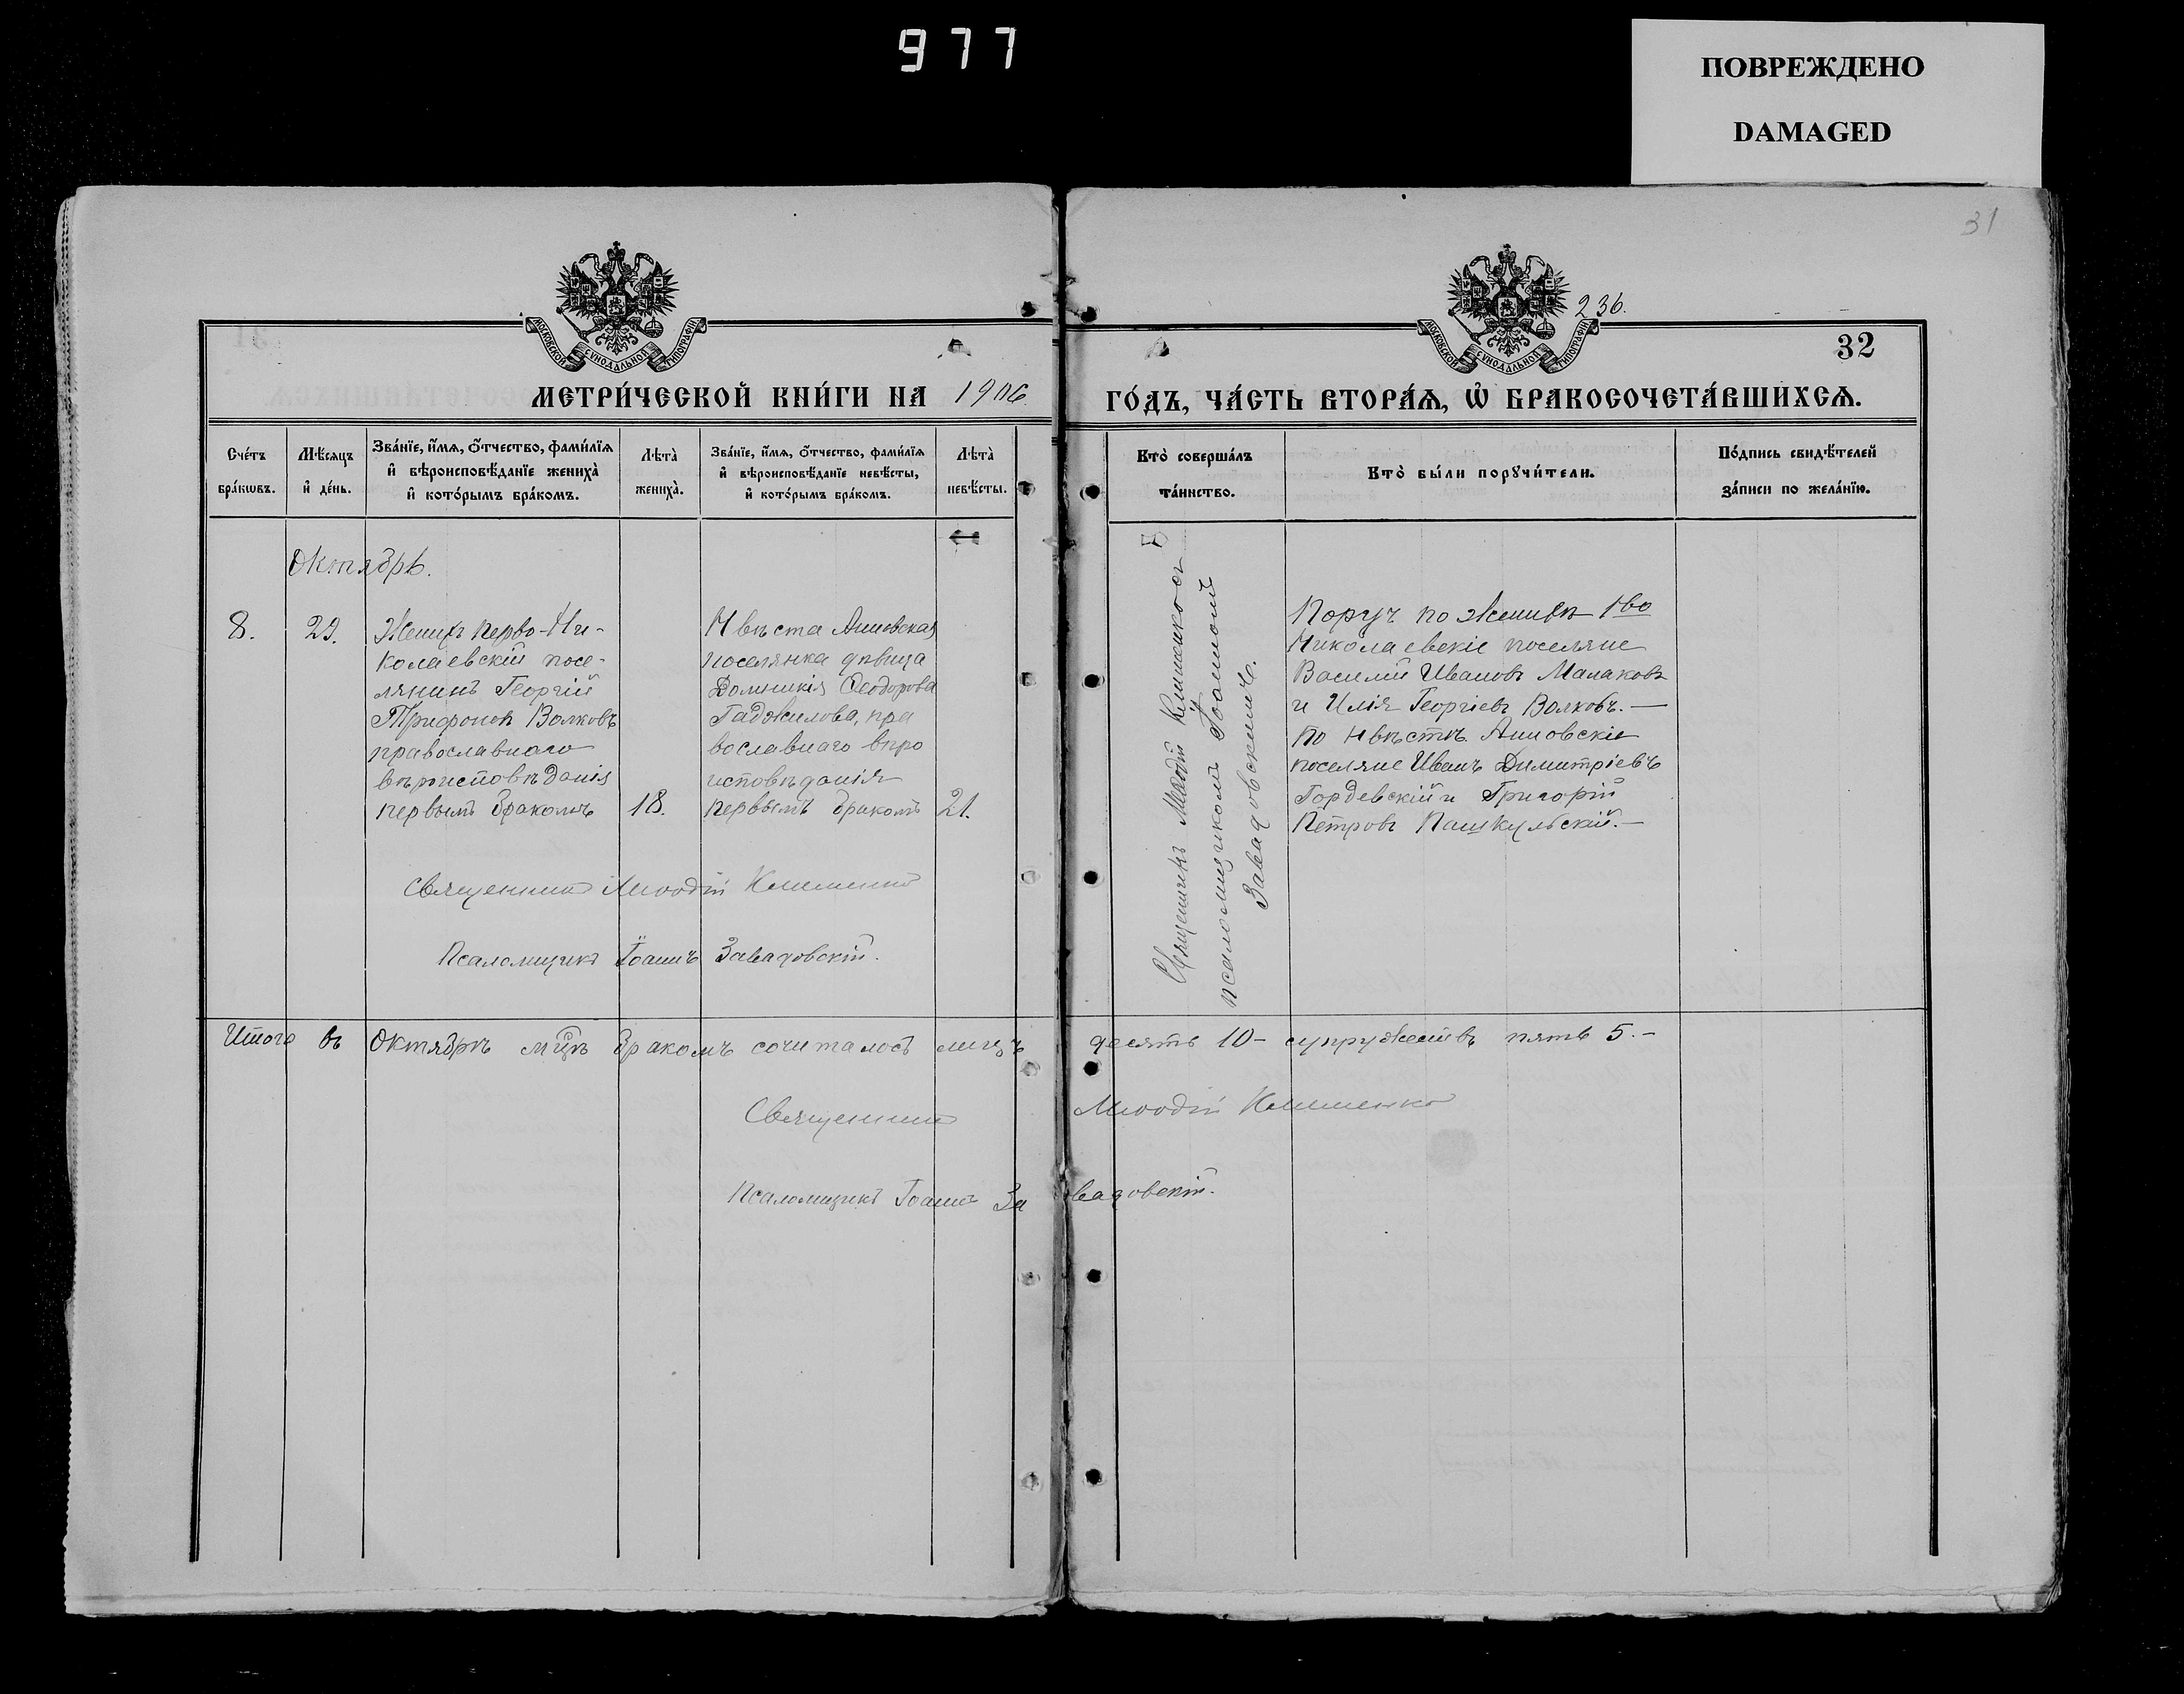 977
ПОВРЕЖДЕНО
DAMAGED
31
236.
32
МОСКОВСКОЙ СѴНОДАЛЬНОЙ ТИПОГРАФІИ
МОСКОВСКОЙ СѴНОДАЛЬНОЙ ТИПОГРАФІИ
МЕТРИ́ЧЕСКОЙ КНИ́ГИ НА 1906
ГО́ДЪ, ЧА́СТЬ ВТОРА́Ѧ, Ѡ҆ БРАКОСОЧЕТА́ВШИХСѦ.
Сче́тъ
бра́кѡвъ.
Мѣ́сяцъ
и҆ де́нь.
Зва́нїе, и҆́мѧ, ѻ҆́тчество, фами́лїѧ
и҆ вѣроисповѣ́данїе жениха̀
и҆ кото́рымъ бра́комъ.
Лѣта̀
жениха̀.
Зва́нїе, и҆́мѧ, ѻ҆́тчество, фами́лїѧ
и҆ вѣроисповѣ́данїе невѣ́сты,
и҆ кото́рымъ бра́комъ.
Лѣта̀
невѣ́сты.
Кто̀ соверша́лъ
та́инство.
Кто̀ бы́ли порꙋчи́тели.
По́дпись свидѣ́телей
за́писи по жела́нїю.
Октябрь.
8.
29.
Женихъ Перво-Ни-
колаевскій посе-
лянинъ Георгій
Трифоновъ Волковъ
православнаго
вѣроисповѣданія
первымъ бракомъ
18.
Нѣвѣста
поселянка дѣвица
Домникія Ѳеодорова
Гаджилова, пра
вославнаго вѣро
исповѣданія
первымъ бракомъ
21.
Священникъ Меѳодій Клименко съ
псаломщикомъ Іоанномъ
Завадовскимъ.
Поруч по Женихѣ 1во
Николаевскіе поселяне
Василій Ивановъ Малаковъ
и Илія Георгіевъ Волковъ.—
По Нѣвѣстѣ
поселяне Иванъ Димитріевъ
Гордевскій и Григорій
Петровъ Пашкульскій.—
Священникъ Меѳодій Клименко
Псаломщикъ Іоаннъ Завадовскій.
Итого въ Октябрѣ мцѣ бракомъ сочиталось лицъ десять 10- супружествъ пять 5.-
Священникъ Меѳодій Клименко
Псаломщикъ Іоаннъ Завадовскій.